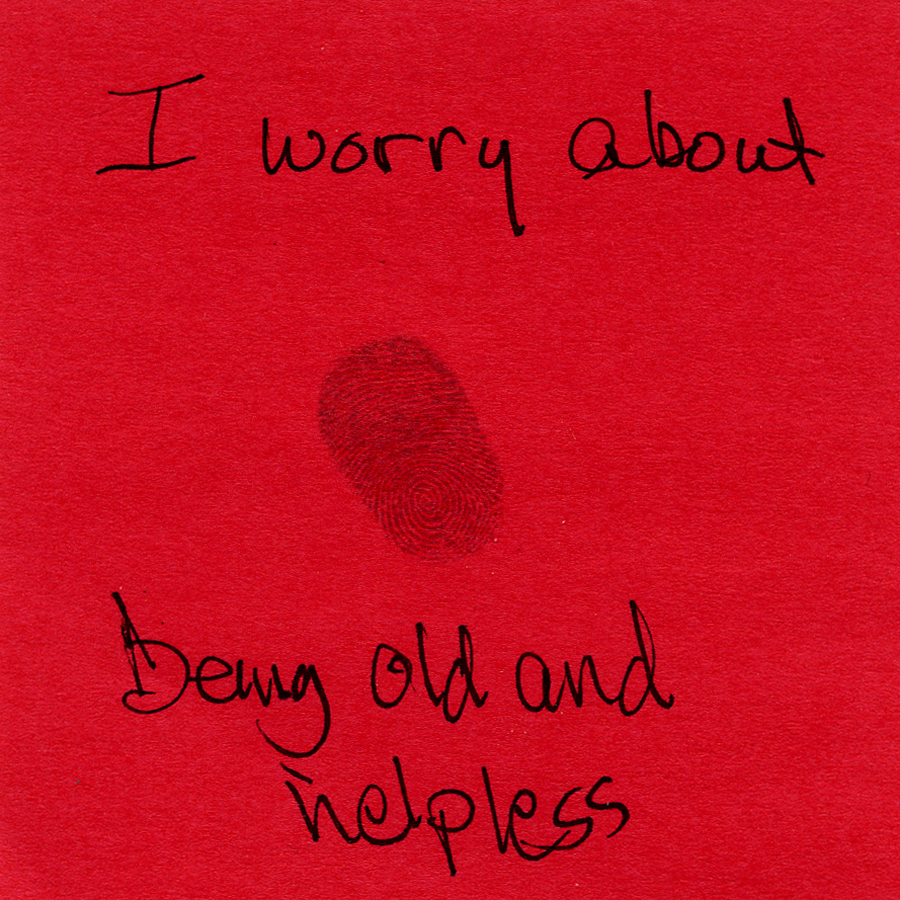 I worry about
Being old and
helpless